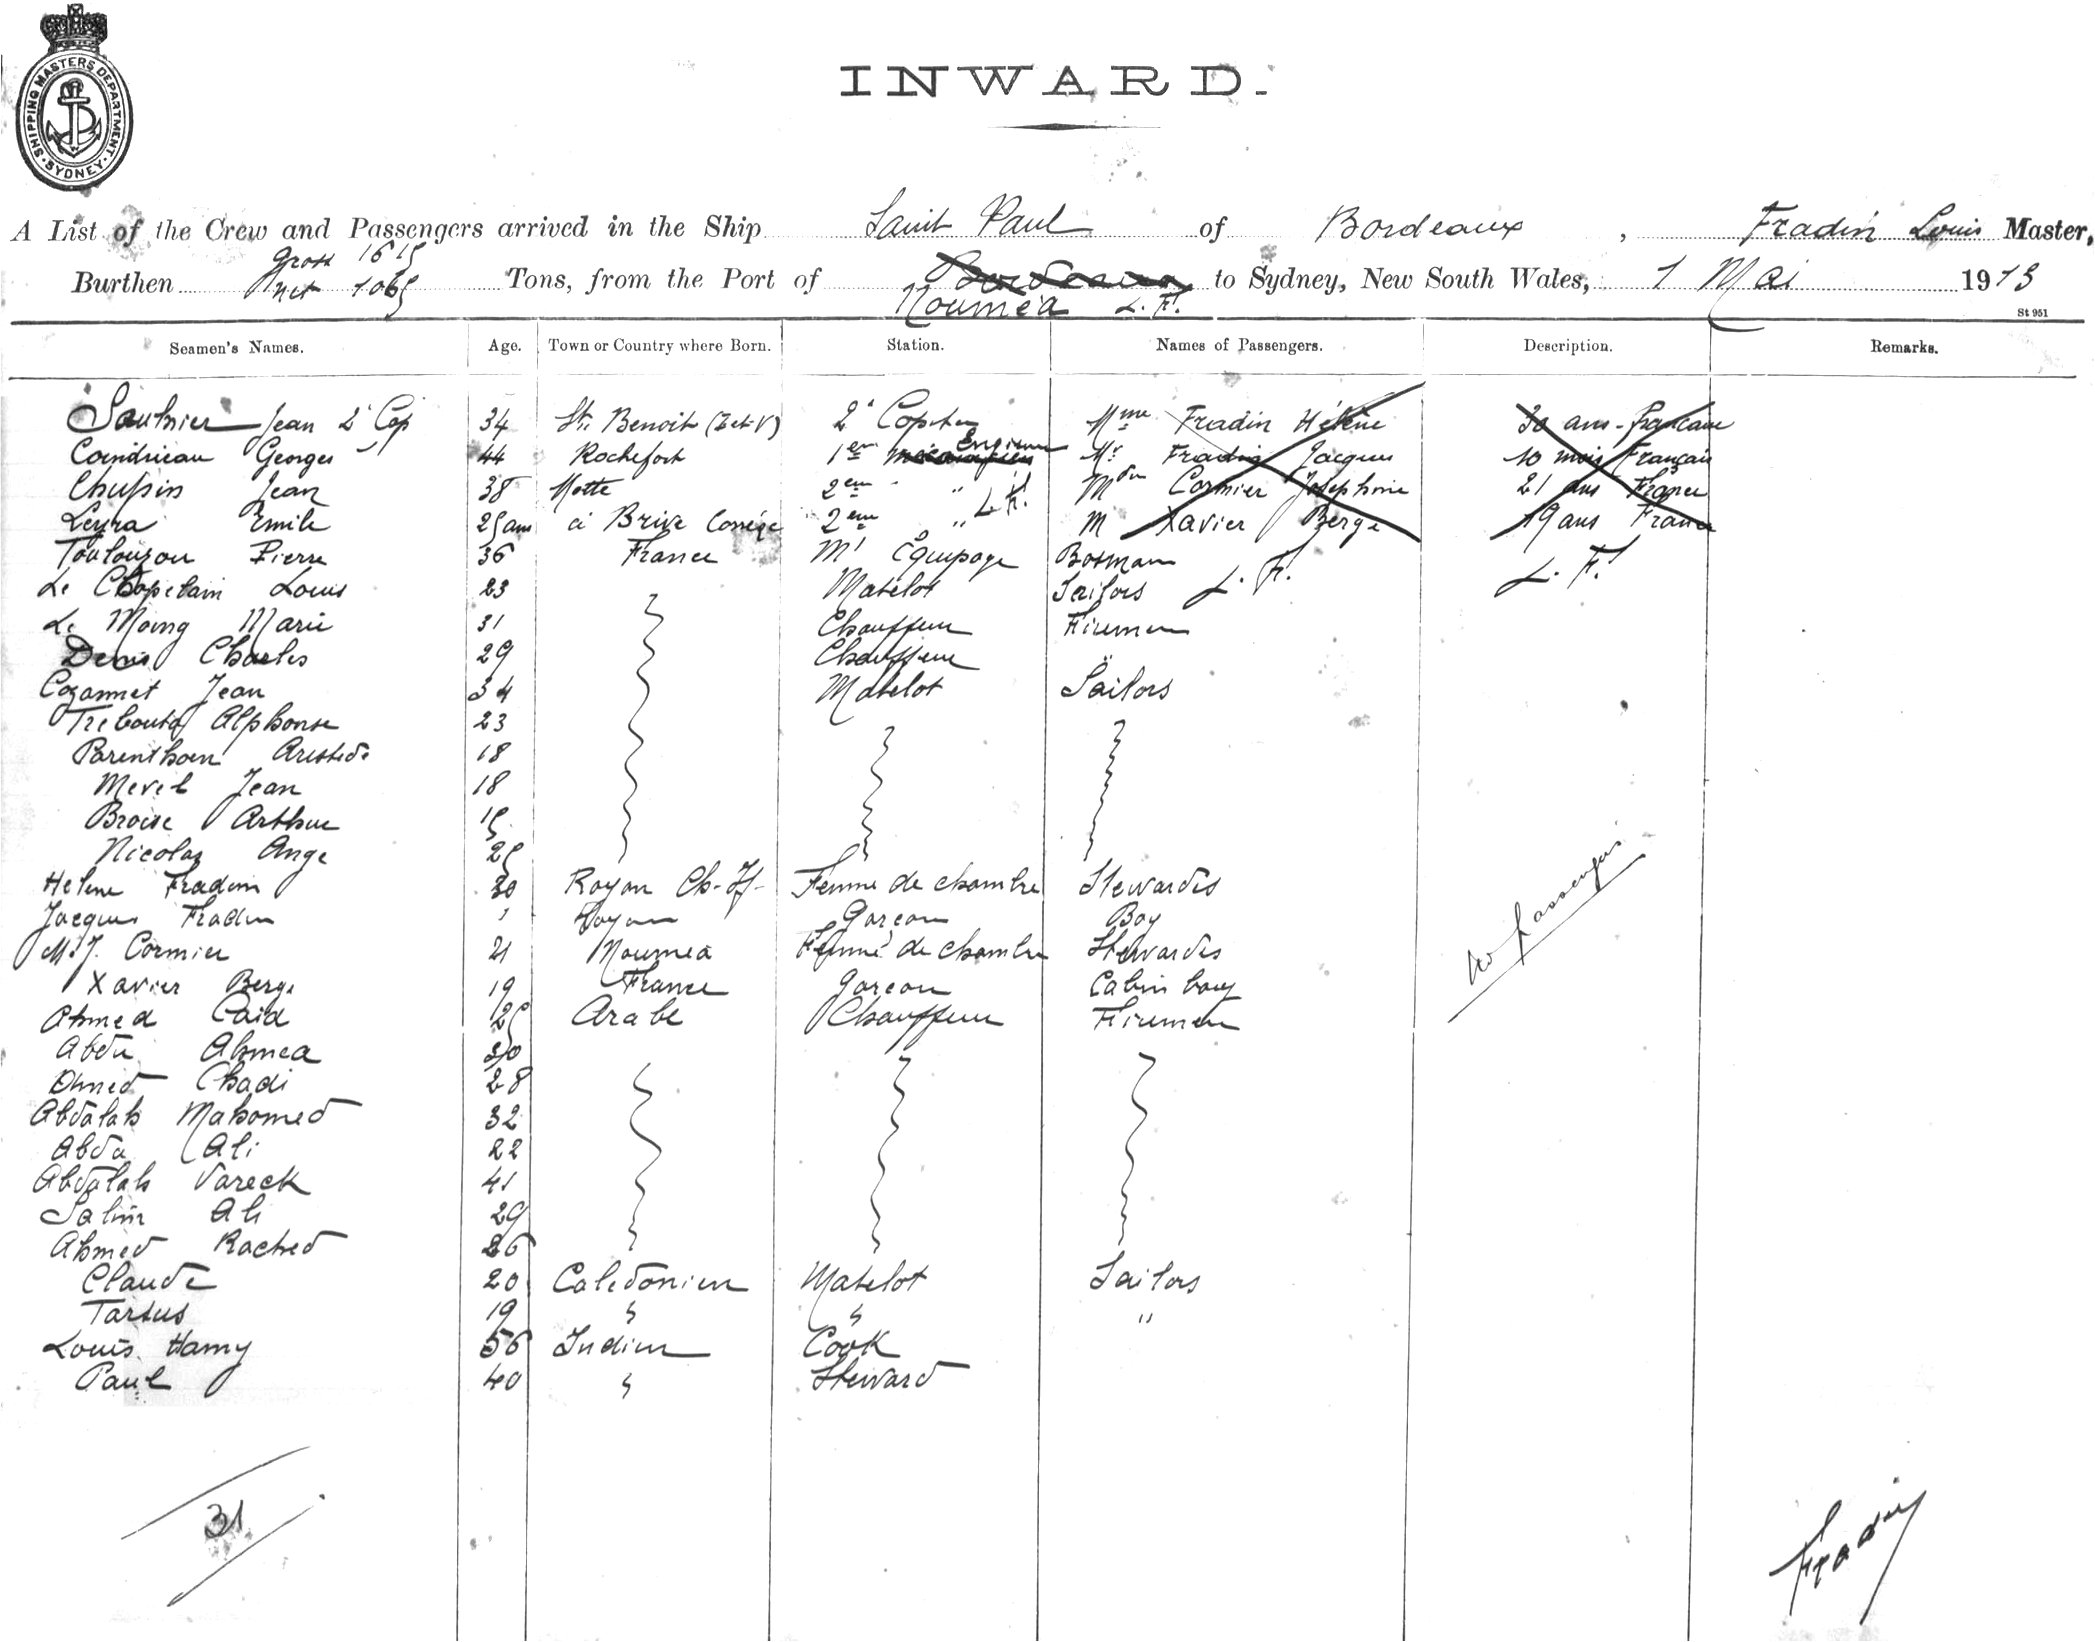 SHIPPING MASTERS DEPARTMENT. SYDNEY
INWARD.
A List of the Crew and Passengers arrived in the Ship Saint Paul of Bordeaux, Fradin Louis Master,
Burthen gross 1615 net 1065 Tons, from the Port of Bordeaux to Sydney, New South Wales, 1 Mai 1913
Nouméa L. F.
St 951
Seamen's Names. Age. Town or Country where Born. Station. Names of Passengers. Description. Remarks.
Saulnier Jean 2d Cap 34 St. Benoit 2d Capten Mme Fradin Hélène 30 ans - française
Coindreau Georges 44 Rochefort 1er Engineer Mr Fradin Jacques 10 mois Français
Chupin Jean 38 Motte 2em " L. F. Mdm Cormier Joséphine 21 ans France
Leyra Emile 25 ans à Brive Corrèze 2em " M Xavier Berge 19 ans France
Toulouzou Pierre 36 France Mt Equipage Bosman L. F. L. F.
Le Chapelain Louis 23 Matelot Sailors
Le Moing Marie 31 Chauffeur Firemen
Denis Charles 29 Chauffeur "
Cozannet Jean 34 Matelot Sailors
Trebouta Alphonse 23
Parenthoen Aristide 18
Merel Jean 18
Broise Arthur 15
Nicolas Ange 25
Helene Fradin 30 Royan Ch-If- Femme de chambre Stewardes
Jacques Fradin 1 Royan Garçon Boy
M. J. Cormier 21 Nouméa Femme de chambre Stewardes
Xavier Berge 19 France Garcon Cabin boy
No passengers
Ahmed Caid 25 Arabe Chauffeur Firemen
Abdu Ahmed 30
Ahmed Chadi 28
Abdalah Mahomed 32
Abda Ali 22
Abdalah Vareck 41
Salim Ali 29
Ahmed Rached 26
Claude 20 Caledonien Matelot Sailors
Tarsus 19 " " "
Louis Hamy 56 Indien Cook
Paul 40 " Steward
31
Fradin